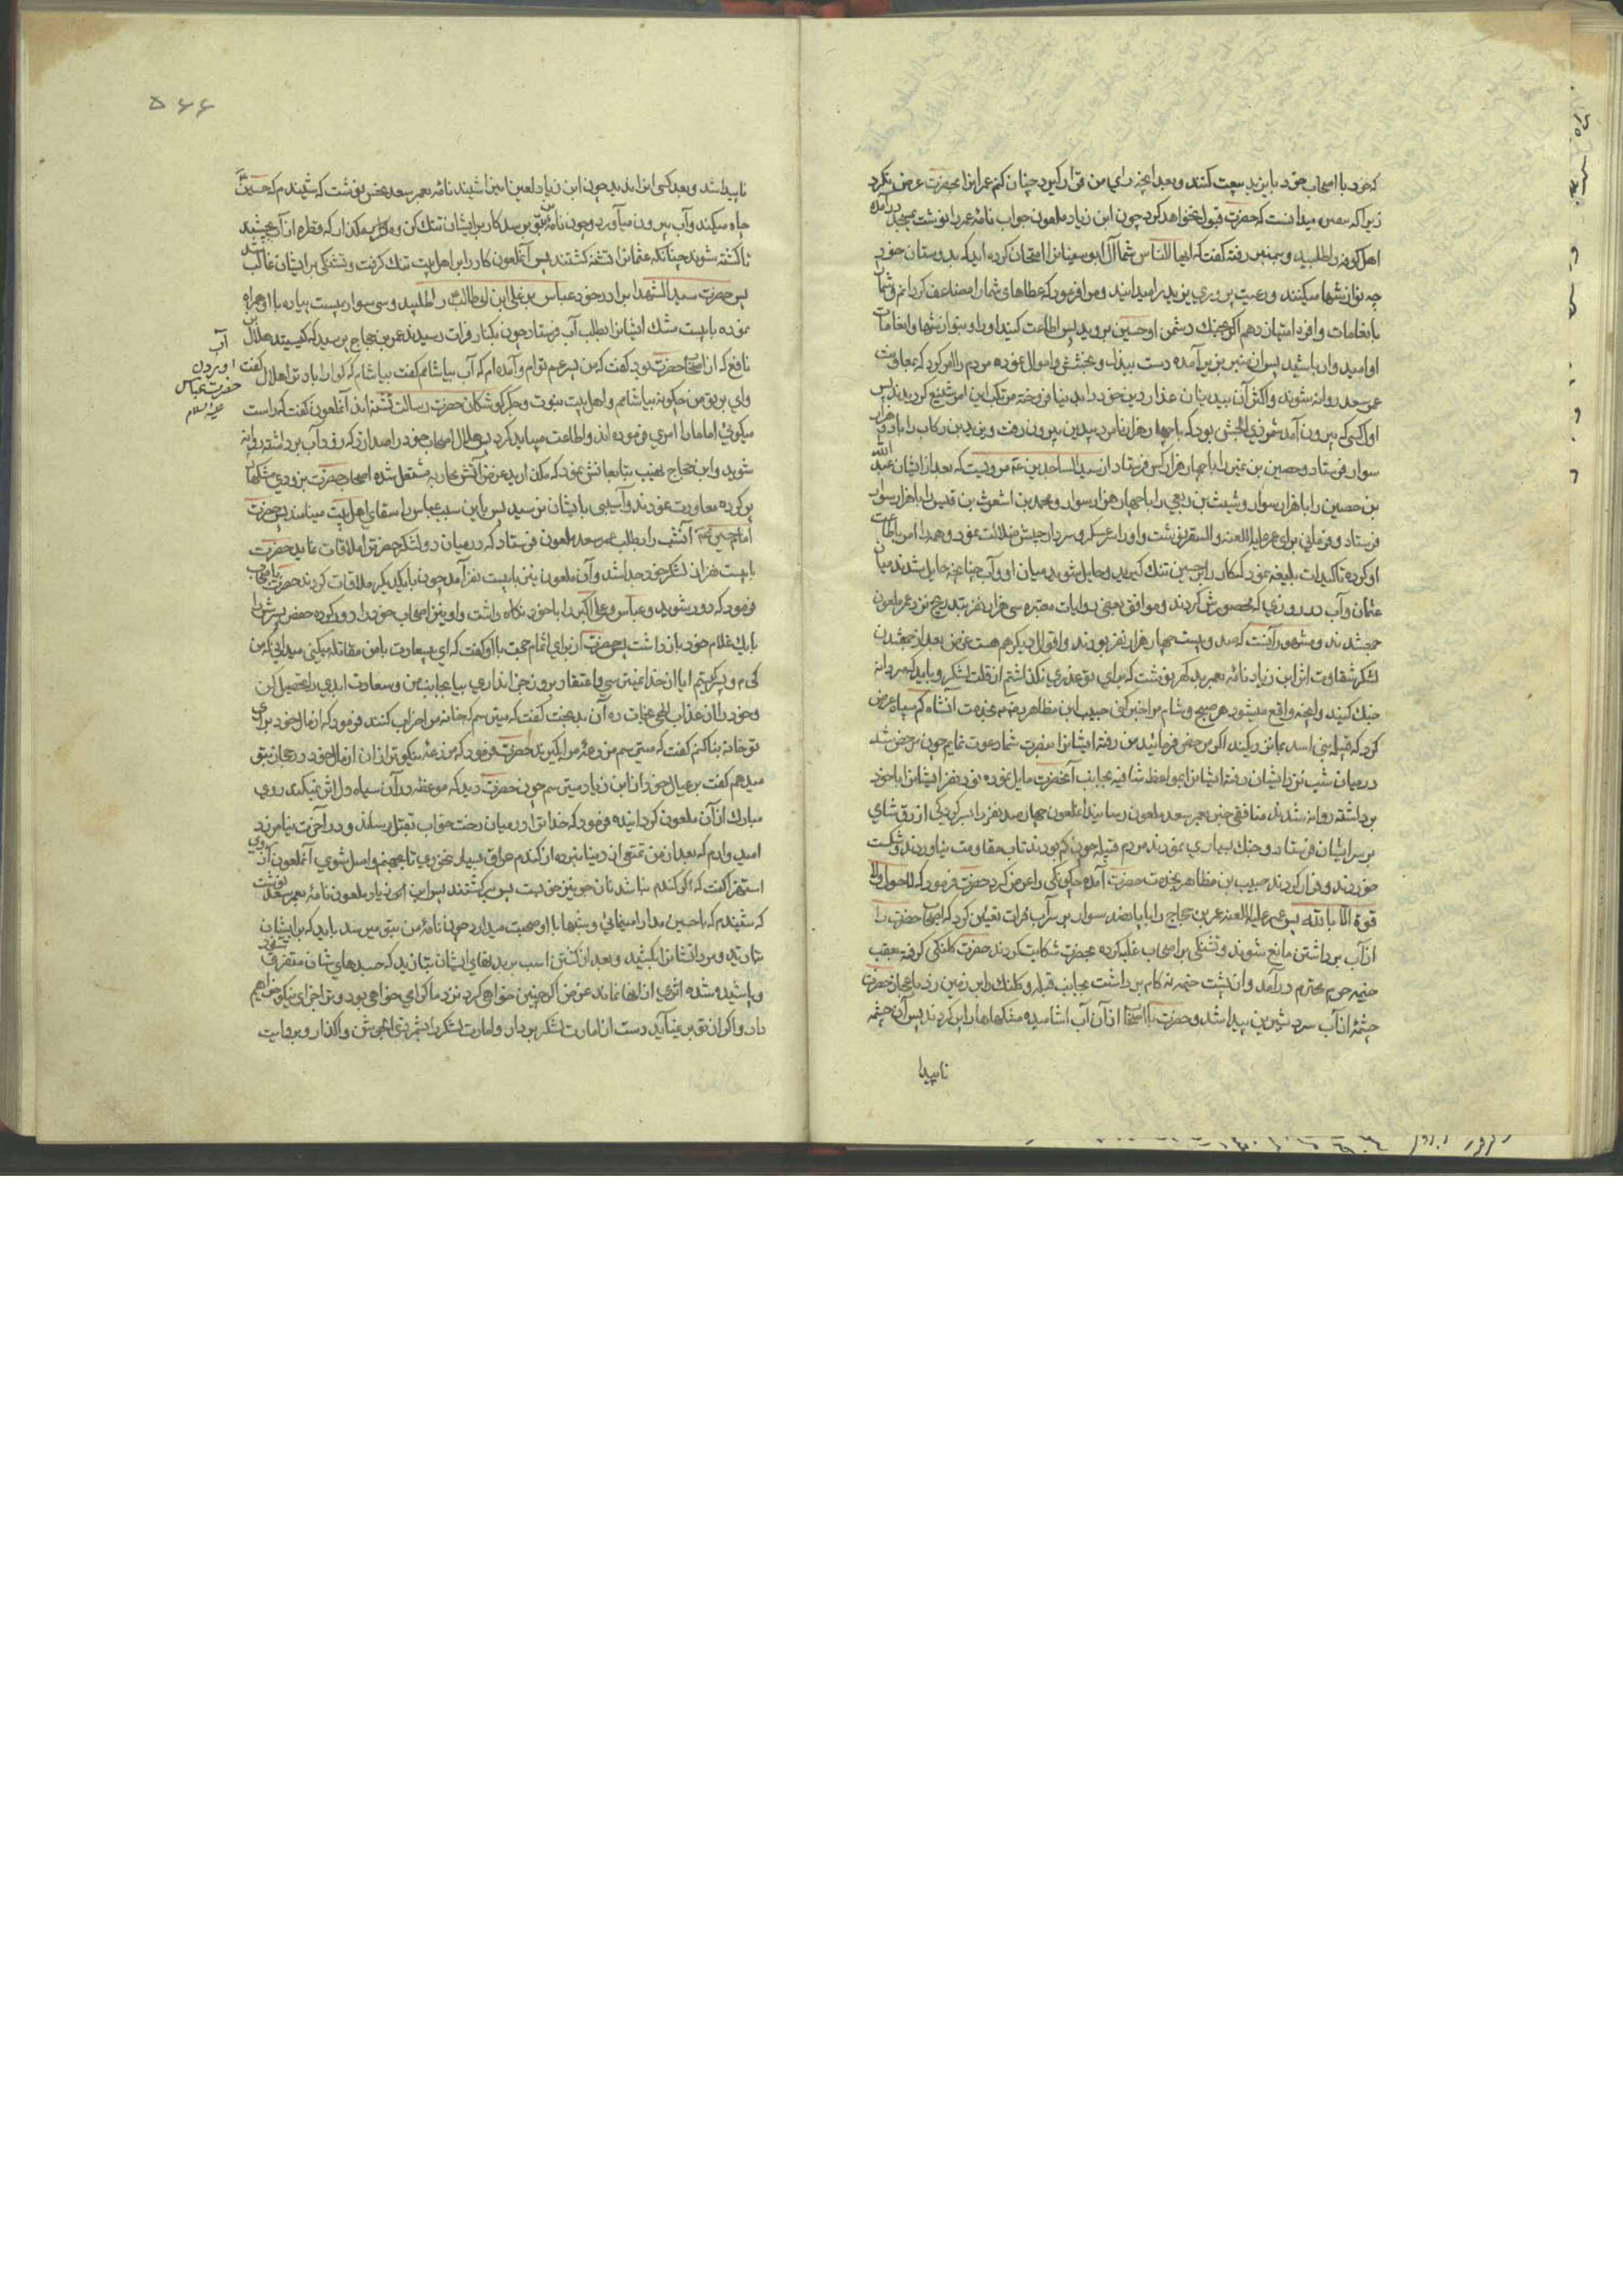 که خود با اصحاب خود با یزید بیعت کنند و بعد از آنچه رای من قرار گیرد چنان کنم عمر این را بحضرت عرض نکرد
زیرا که بیقین میدانست که حضرت قبول نخواهد کرد چون ابن زیاد ملعون جواب نامه عمر را نوشت بمسجد درآمده
اهل کوفه را طلبید و بمنبر رفته گفت که ایها الناس شما آل ابوسفیان را امتحان کرده اید که بدوستان خود
چه نوازشها میکنند و رعیت پروری یزید را میدانید و مرا فرمود که عطاهای شما را مضاعف گردانم و شما را
بانعامات وافره امتیاز دهم اگر بجنک دشمن او حسین بروید پس اطاعت کنید او را و بنوازشها و انعامات
او امیدوار باشید پس از منبر بزیر آمده دست ببذل و بخشش و اموال نموده مردم را امر کرد که بمعاونت
عمر سعد روانه شوند و اکثر آن بیدینان غدار دین خود را بدنیا فروخته مرتکب این امر شنیع گردیدند پس
اول کسی که بیرون آمد شمر ذی الجوشن بود که با چهار هزار نامرد بیدین بیرون رفت و یزید بن رکاب را با دو هزار
سوار فرستاد و حصین بن نمیر را با چهار هزار کس فرستاد از سید الساجدین ع مرویست که بعد از ایشان عبد الله
بن حصین را با هزار سوار و شیث بن ربعی را با چهار هزار سوار و محمد بن اشعث بن قیس را با هزار سوار
فرستاد و فرمانی برای عمر علیه اللعنه و السقر نوشت و او را عسکر و سردار جیش ضلالت نمود و همه را امر اطاعت
او کرده تاکیدات بلیغه نمود که کار را بر حسین تنک گیرید و حایل شوید میان او و آب چنانچه حایل شدند میان
عثمان و آب در روزی که محصورش کردند و موافق بعضی روایات معتبره سی هزار نفر بتدریج نزد عمر ملعون
جمع شدند و مشهور آنست که صد و بیست چهار هزار نفر بودند و اقوال دیگر هم هست غرض بعد از جمع شدن
لشکر شقاوت اثر ابن زیاد نامه بعمر بد گهر نوشت که برای تو عذری نگذاشتم از قلت لشکر و باید که مردانه
جنک کنید و آنچه واقع میشود هر صبح و شام مرا خبر کنی حبیب ابن مظاهر بخدمت آنشاه کم سپاه عرض
کرد که قبیله بنی اسد بما نزدیکند اگر مرخص فرمائید من رفته ایشانرا بنصرت شما دعوت نمایم چون مرخص شد
در میان شب نزد ایشان رفته ایشانرا بمواعظ شافیه بجانب آنحضرت مایل نموده نود نفر ایشانرا با خود
برداشته روانه شدند منافقی خبر بعمر سعد ملعون رسانید آنملعون چهار صد نفر را بسرکردگی ازرق شامی
بر سر ایشان فرستاد و جنک بسیاری نمودند مردم قبیله چون کم بودند تاب مقاومت نیاوردند و شکست
خوردند و فرار کردند حبیب بن مظاهر بخدمت حضرت آمده چگونگی را عرض کرد حضرت فرمود که لا حول ولا
قوة الا بالله پس عمر علیه اللعنه عمر بن حجاج را با پانصد سوار بر سر آب فرات تعیین کرد که اصحاب حضرت را
از آب برداشتن مانع شوند و تشنگی بر اصحاب غلبه کرده بحضرت شکایت کردند حضرت کلنکی گرفته بعقب
خیمه حرم محترم درآمد و از پشت خیمه نه گام برداشت بجانب قبله و کلنک را بر زمین زد باعجاز حضرت
چشمه از آب سرد شیرین پیدا شد و حضرت با اصحاب از آن آب آشامیده مشکها را پر کردند پس آن چشمه
ناپیدا
۵۶۶
ناپیدا شد و بعد کسی آنرا ندید چون ابن زیاد لعین این را شنید نامه بعمر سعد نحس نوشت که شنیدم که حسین
چاه میکند و آب بیرون میآورد و چون نامه من بتو برسد کار بر ایشان تنک کن و مگذار که قطره از آب بچشند
تا کشته شوند چنانکه عثمانرا تشنه کشتند پس آنملعون کار را بر اهل بیت تنک گرفت و تشنگی بر ایشان غالب شد
پس حضرت سید الشهدا برادر خود عباس بن علی ابن ابی طالب را طلبید و سی سوار بیست پیاده با او همراه
نموده با بیست مشک ایشانرا بطلب آب فرستاد چون بکنار فرات رسیدند عمر بن حجاج پرسید که کیستید هلال بن
نافع که از اصحاب حضرت بود گفت که من پسر عم توام و آمده ام که آب بیاشامم گفت بیاشام که گوارا باد ترا هلال گفت
وای بر تو من چگونه بیاشامم و اهل بیت نبوت و جگرگوشگان حضرت رسالت تشنه اند آنملعون گفت که راست
میگوئی اما ما را امری فرموده اند و اطاعت میباید کرد پس هلال اصحاب خود را صدا زد که زود آب برداشته روانه
شوید و ابن حجاج لعین بتابعانش نمود که مگذارید غرض آتش محاربه مشتعل شده اصحاب حضرت بزودی مشکها
پر کرده معاودت نمودند و آسیبی بایشان نرسید پس باین سبب عباس را سقای اهل بیت مینامند پس حضرت
امام حسین ع آنشب را بطلب عمر سعد ملعون فرستاد که در میان دو لشکر حضرترا ملاقات نماید حضرت
با بیست نفر از لشکر خود جدا شد و آن ملعون نیز با بیست نفر آمد چون با یکدیگر ملاقات کردند حضرت باصحاب
فرمود که دور شوید و عباس و علی اکبر را با خود نگاه داشت و او نیز اصحاب خود را دور کرده حفص پسرش را
با یک غلام خود باز داشت پس حضرت از برای اتمام حجت با او گفت که ای بیسعادت با من مقاتله میکنی میدانی که من
کیم و پسر کیستم ایا از خدا نمیترسی و اعتقاد بروز جزا نداری بیا بجانب من و سعادت ابدی را تحصیل کن
و خود را از عذاب الهی نجات ده آن بدبخت گفت که میترسم که خانه مرا خراب کنند فرمود که از مال خود برای
تو خانه بنا کنم گفت که میترسم مزرعه مرا بگیرند حضرت فرمود که مزرعه نیکوتر از آن از مال خود در حجاز بتو
میدهم گفت بر عیال خود از ابن زیاد میترسم چون حضرت دید که موعظه در آن سیاه دل اثر نمیکند روی
مبارک از آن ملعون گردانیده فرمود که خدا ترا در میان رخت خواب بقتل رساند و در آخرت نیامرزد
امیدوارم که بعد از من تمتعی از دنیا نبرده از گندم عراق بسیار نخوری تا بجهنم واصل شوی آنملعون از روی
استهزا گفت که اگر گندم نباشد نان جو نیز خوبست پس برگشتند پس ابن زیاد ملعون نامه بعمر سعد نوشت
که شنیدم که با حسین مدارا مینمائی و شبها با او صحبت میداری چون نامه من بتو میرسد باید که بر ایشان
بتازید و مردانشانرا بکشید و بعد از کشتن اسب بر بدنهای ایشان بتازید که جسدهای شان متفرق شود
و پاشیده شده اثری از آنها نماند غرض اگر چنین خواهی کرد نزد ما گرامی خواهی بود و ترا جزای نیکو خواهیم
داد و اگر از تو بر نمیآید دست از امارت لشکر بردار و امارت لشکر را بشمر ذی الجوشن واگذار
آب
اوردن
حضرت عباس
علیه السلام